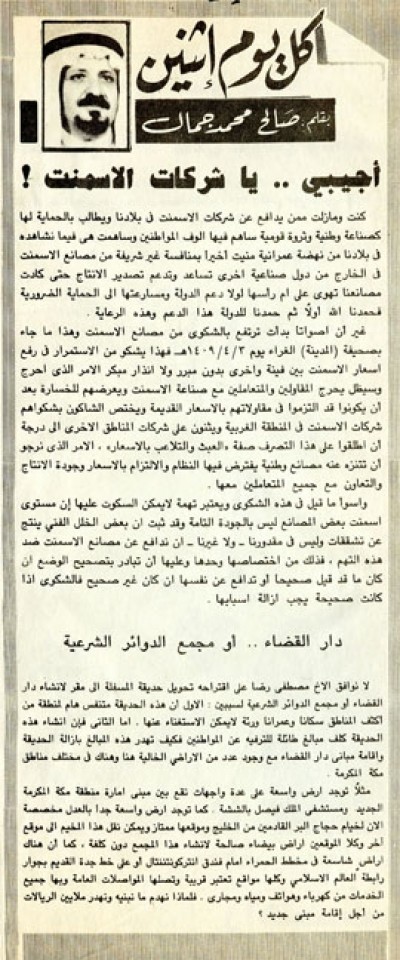 أكل يوم إثنين
بقلم: صالح محمد جمال
أجيبي .. يا شركات الاسمنت !
كنت ومازلت ممن يدافع عن شركات الاسمنت فى بلادنا ويطالب بالحماية لها
كصناعة وطنية وثروة قومية ساهم فيها الوف المواطنين وساهمت هى فيما نشاهده
فى بلادنا من نهضة عمرانية منيت اخيرا بمنافسة غير شريفة من مصانع الاسمنت
في الخارج من دول صناعية اخرى تساعد وتدعم تصدير الانتاج حتى كادت
مصانعنا تهوى على ام رأسها لولا دعم الدولة ومسارعتها الى الحماية الضرورية
فحمدنا الله اولًا ثم حمدنا للدولة هذا الدعم وهذه الرعاية .
غير أن اصواتا بدأت ترتفع بالشكوى من مصانع الاسمنت وهذا ما جاء
بصحيفة (المدينة) الغراء يوم ١٤٠٩/٤/٣هـ فهذا يشكو من الاستمرار في رفع
اسعار الاسمنت بين فينة واخرى بدون مبرر ولا انذار مبكر الامر الذى احرج
وسيظل يحرج المقاولين والمتعاملين مع صناعة الاسمنت ويعرضهم للخسارة بعد
أن يكونوا قد التزموا فى مقاولاتهم بالاسعار القديمة ويختص الشاكون بشكواهم
شركات الاسمنت في المنطقة الغربية ويثنون على شركات المناطق الاخرى الى درجة
أن اطلقوا على هذا التصرف صفة «العبث والتلاعب بالاسعار» ، الامر الذى نرجو
أن تتنزه عنه مصانع وطنية يفترض فيها النظام والالتزام بالاسعار وجودة الانتاج
والتعاون مع جميع المتعاملين معها .
واسوأ ما قيل فى هذه الشكوى ويعتبر تهمة لايمكن السكوت عليها إن مستوى
اسمنت بعض المصانع ليس بالجودة التامة وقد ثبت ان بعض الخلل الفني ينتج
عن تشققات وليس في مقدورنا ــ ولا غيرنا ــ ان ندافع عن مصانع الاسمنت ضد
هذه التهم ، فذلك من اختصاصها وحدها وعليها أن تبادر بتصحيح الوضع ان
كان ما قد قيل صحيحا أو تدافع عن نفسها ان كان غير صحيح فالشكوى اذا
كانت صحيحة يجب ازالة اسبابها .
دار القضاء .. او مجمع الدوائر الشرعية
لا نوافق الاخ مصطفى رضا على اقتراحه تحويل حديقة المسفلة الى مقر لانشاء دار
القضاء او مجمع الدوائر الشرعية لسببين : الاول أن هذه الحديقة متنفس هام لمنطقة من
اكثف المناطق سكانا وعمرانا ورئة لايمكن الاستغناء عنها . اما الثانى فإن انشاء هذه
الحديقة كلف مبالغ طائلة للترفيه عن المواطنين فكيف تهدر هذه المبالغ بازالة الحديقة
واقامة مبانى دار القضاء مع وجود عدد من الاراضي الخالية هنا وهناك فى مختلف مناطق
مكة المكرمة .
مثلًا توجد ارض واسعة على عدة واجهات تقع بين مبنى امارة منطقة مكة المكرمة
الجديد ومستشفى الملك فيصل بالششة . كما توجد ارض واسعة جدا بالعدل مخصصة
الان لخيام حجاج البر القادمين من الخليج وموقعها ممتاز ويمكن نقل هذا المخيم الى موقع
آخر وكلا الموقعين اراض بيضاء صالحة لانشاء هذا المجمع دون كلفة ، كما أن هناك
اراض شاسعة فى مخطط الحمراء امام فندق انتركونتننتال أو على خط جدة القديم بجوار
رابطة العالم الاسلامي وكلها مواقع تعتبر قريبة وتصلها المواصلات العامة وبها جميع
الخدمات من كهرباء وهواتف ومياه ومجارى . فلماذا نهدم ما نبنيه ونهدر ملايين الريالات
من أجل إقامة مبنى جديد ؟